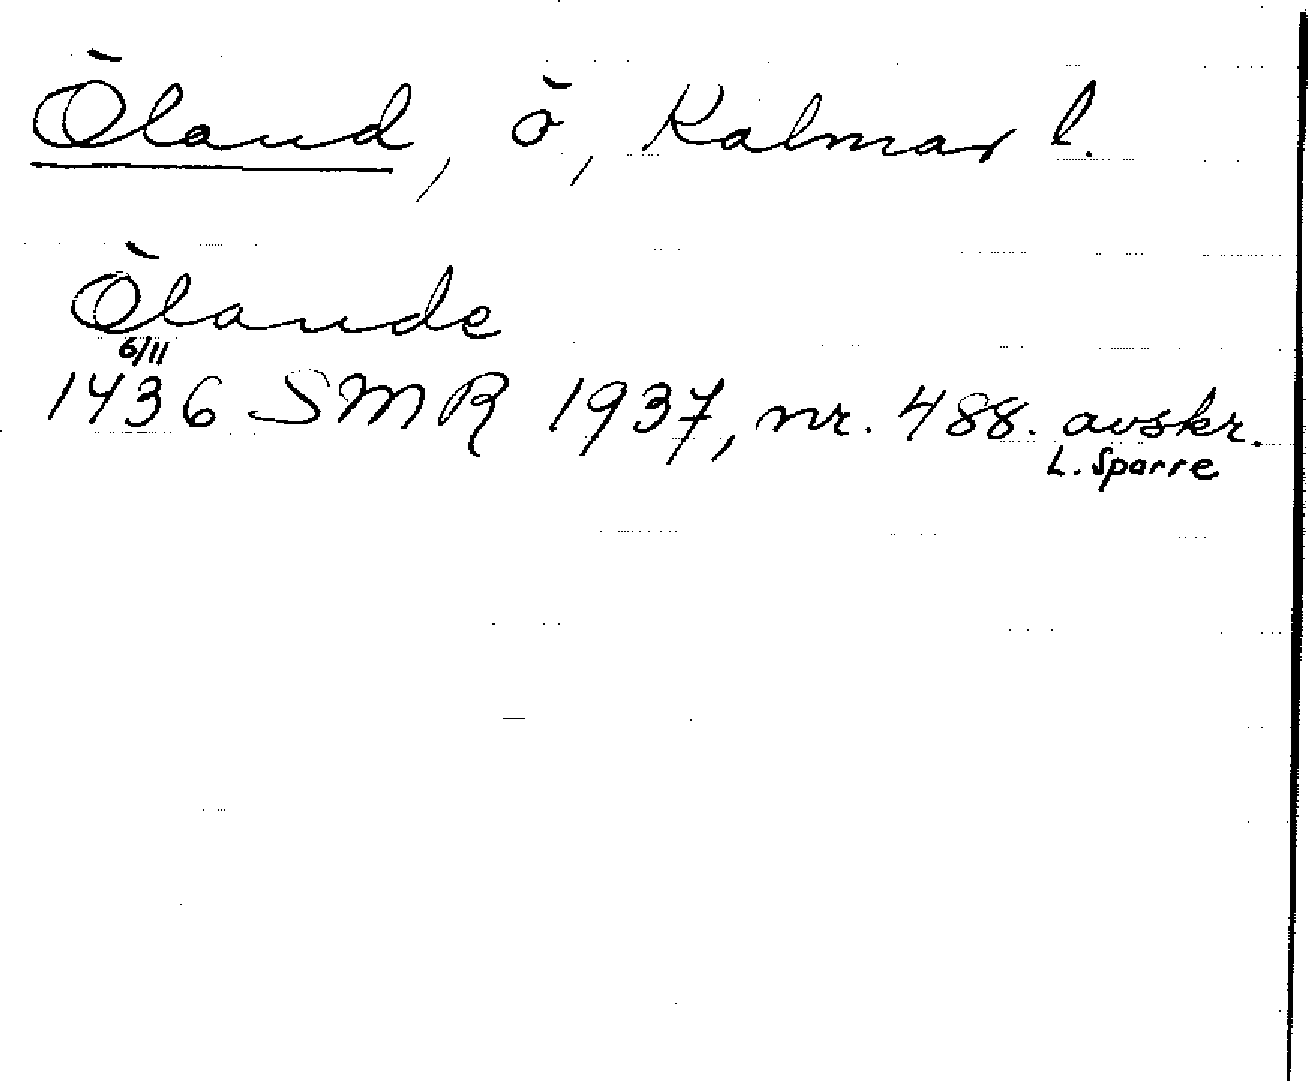 Öland, ö, Kalmar l.
Ölande
6/11
1436 SMR 1937, nr. 488. avskr.
L. Sparre